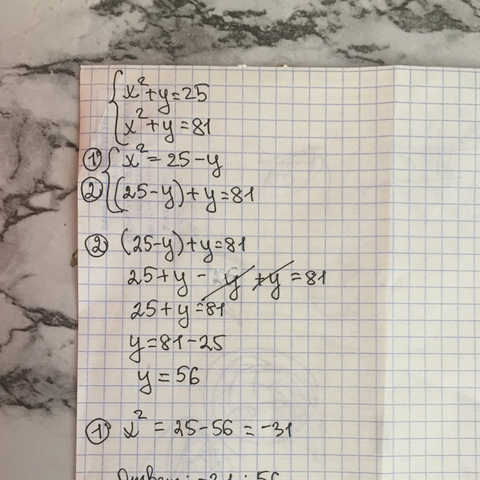 { x² + y = 25
{ x² + y = 81
① { x² = 25 - y
② { (25 - y) + y = 81
② (25 - y) + y = 81
25 + y - y + y = 81
25 + y = 81
y = 81 - 25
y = 56
① x² = 25 - 56 = -31